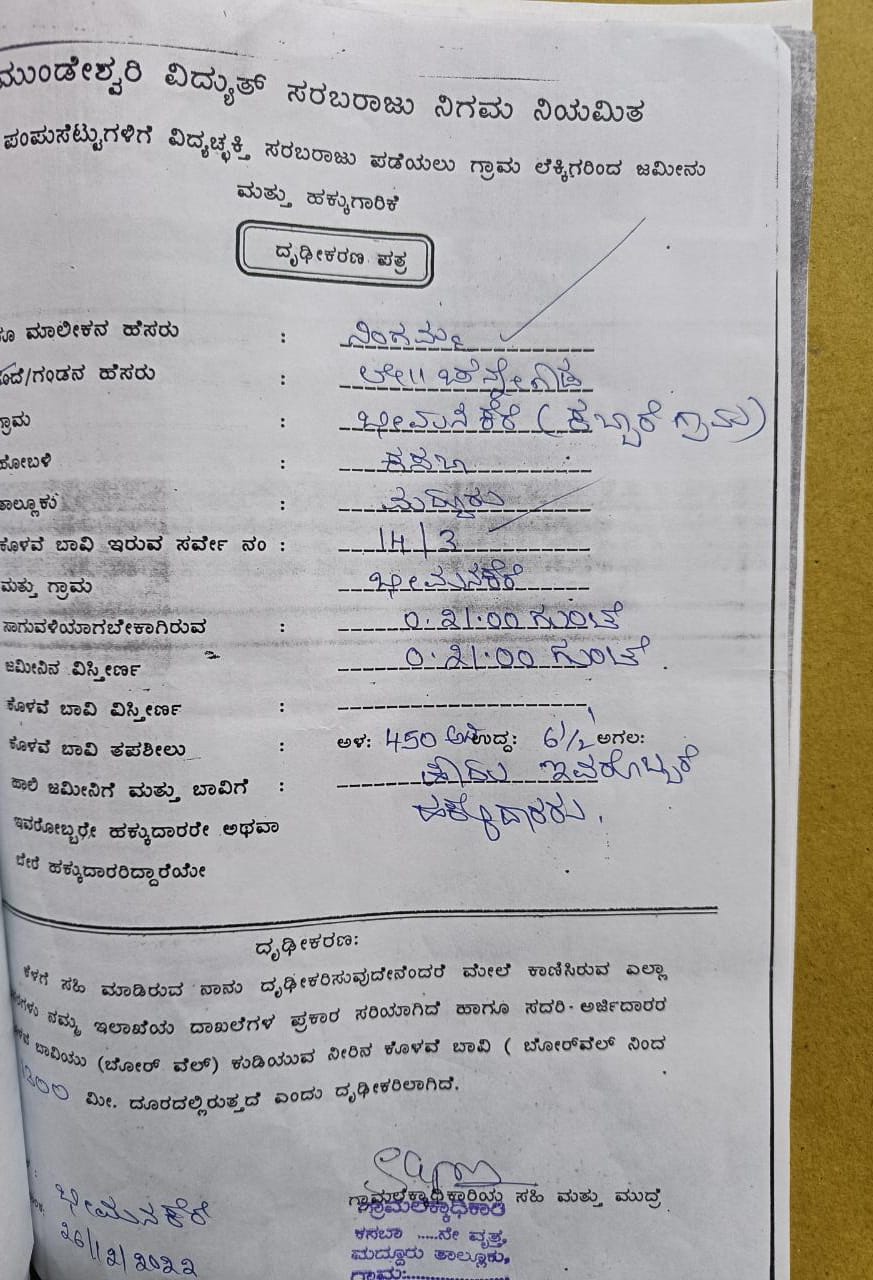 ಮುಂಡೇಶ್ವರಿ ವಿದ್ಯುತ್ ಸರಬರಾಜು ನಿಗಮ ನಿಯಮಿತ
ಪಂಪುಸೆಟ್ಟುಗಳಿಗೆ ವಿದ್ಯಚ್ಛಕ್ತಿ ಸರಬರಾಜು ಪಡೆಯಲು ಗ್ರಾಮ ಲೆಕ್ಕಿಗರಿಂದ ಜಮೀನು
ಮತ್ತು ಹಕ್ಕುಗಾರಿಕೆ
ದೃಢೀಕರಣ ಪತ್ರ
ಮಾಲೀಕನ ಹೆಸರು : ನಿಂಗಮ್ಮ
ಂದೆ/ಗಂಡನ ಹೆಸರು : ಲೇ||
ಗ್ರಾಮ : ಭೀಮನಕೆರೆ ( ಕಬ್ಬಾರೆ ಗ್ರಾಮ)
ಹೋಬಳಿ : ಕಸಬಾ
ತಾಲ್ಲೂಕು : ಮದ್ದೂರು
ಕೊಳವೆ ಬಾವಿ ಇರುವ ಸರ್ವೇ ನಂ : 14/3
ಮತ್ತು ಗ್ರಾಮ ಭೀಮನಕೆರೆ
ಸಾಗುವಳಿಯಾಗಬೇಕಾಗಿರುವ : 0.21.00 ಗುಂಟೆ
ಜಮೀನಿನ ವಿಸ್ತೀರ್ಣ 0.21.00 ಗುಂಟೆ.
ಕೊಳವೆ ಬಾವಿ ವಿಸ್ತೀರ್ಣ :
ಕೊಳವೆ ಬಾವಿ ತಪಶೀಲು : ಅಳ: 450 ಅಡಿ ಉದ್ದ: 6 1/2 ಅಗಲ:
ಹಾಲಿ ಜಮೀನಿಗೆ ಮತ್ತು ಬಾವಿಗೆ : ಹೌದು ಇವರೊಬ್ಬರೆ
ಇವರೋಬ್ಬರೇ ಹಕ್ಕುದಾರರೇ ಅಥವಾ ಹಕ್ಕುದಾರರು.
ಬೇರೆ ಹಕ್ಕುದಾರರಿದ್ದಾರೆಯೇ
ದೃಢೀಕರಣ:
ಕೆಳಗೆ ಸಹಿ ಮಾಡಿರುವ ನಾನು ದೃಢೀಕರಿಸುವುದೇನೆಂದರೆ ಮೇಲೆ ಕಾಣಿಸಿರುವ ಎಲ್ಲಾ
ನಮ್ಮ ಇಲಾಖೆಯ ದಾಖಲೆಗಳ ಪ್ರಕಾರ ಸರಿಯಾಗಿದೆ ಹಾಗೂ ಸದರಿ-ಅರ್ಜಿದಾರರ
ಬಾವಿಯು (ಬೋರ್ ವೆಲ್) ಕುಡಿಯುವ ನೀರಿನ ಕೊಳವೆ ಬಾವಿ ( ಬೋರ್‌ವೆಲ್ ನಿಂದ
1300 ಮೀ. ದೂರದಲ್ಲಿರುತ್ತದೆ ಎಂದು ದೃಢೀಕರಿಲಾಗಿದೆ.
ಗ್ರಾಮಲೆಕ್ಕಾಧಿಕಾರಿಯ ಸಹಿ ಮತ್ತು ಮುದ್ರೆ
ಭೀಮನಕೆರೆ
26/12/2022
ಗ್ರಾಮಲೆಕ್ಕಾಧಿಕಾರಿ
ಕಸಬಾ .....ನೇ ವೃತ್ತ,
ಮದ್ದೂರು ತಾಲ್ಲೂಕು,
ಗ್ರಾಮ: